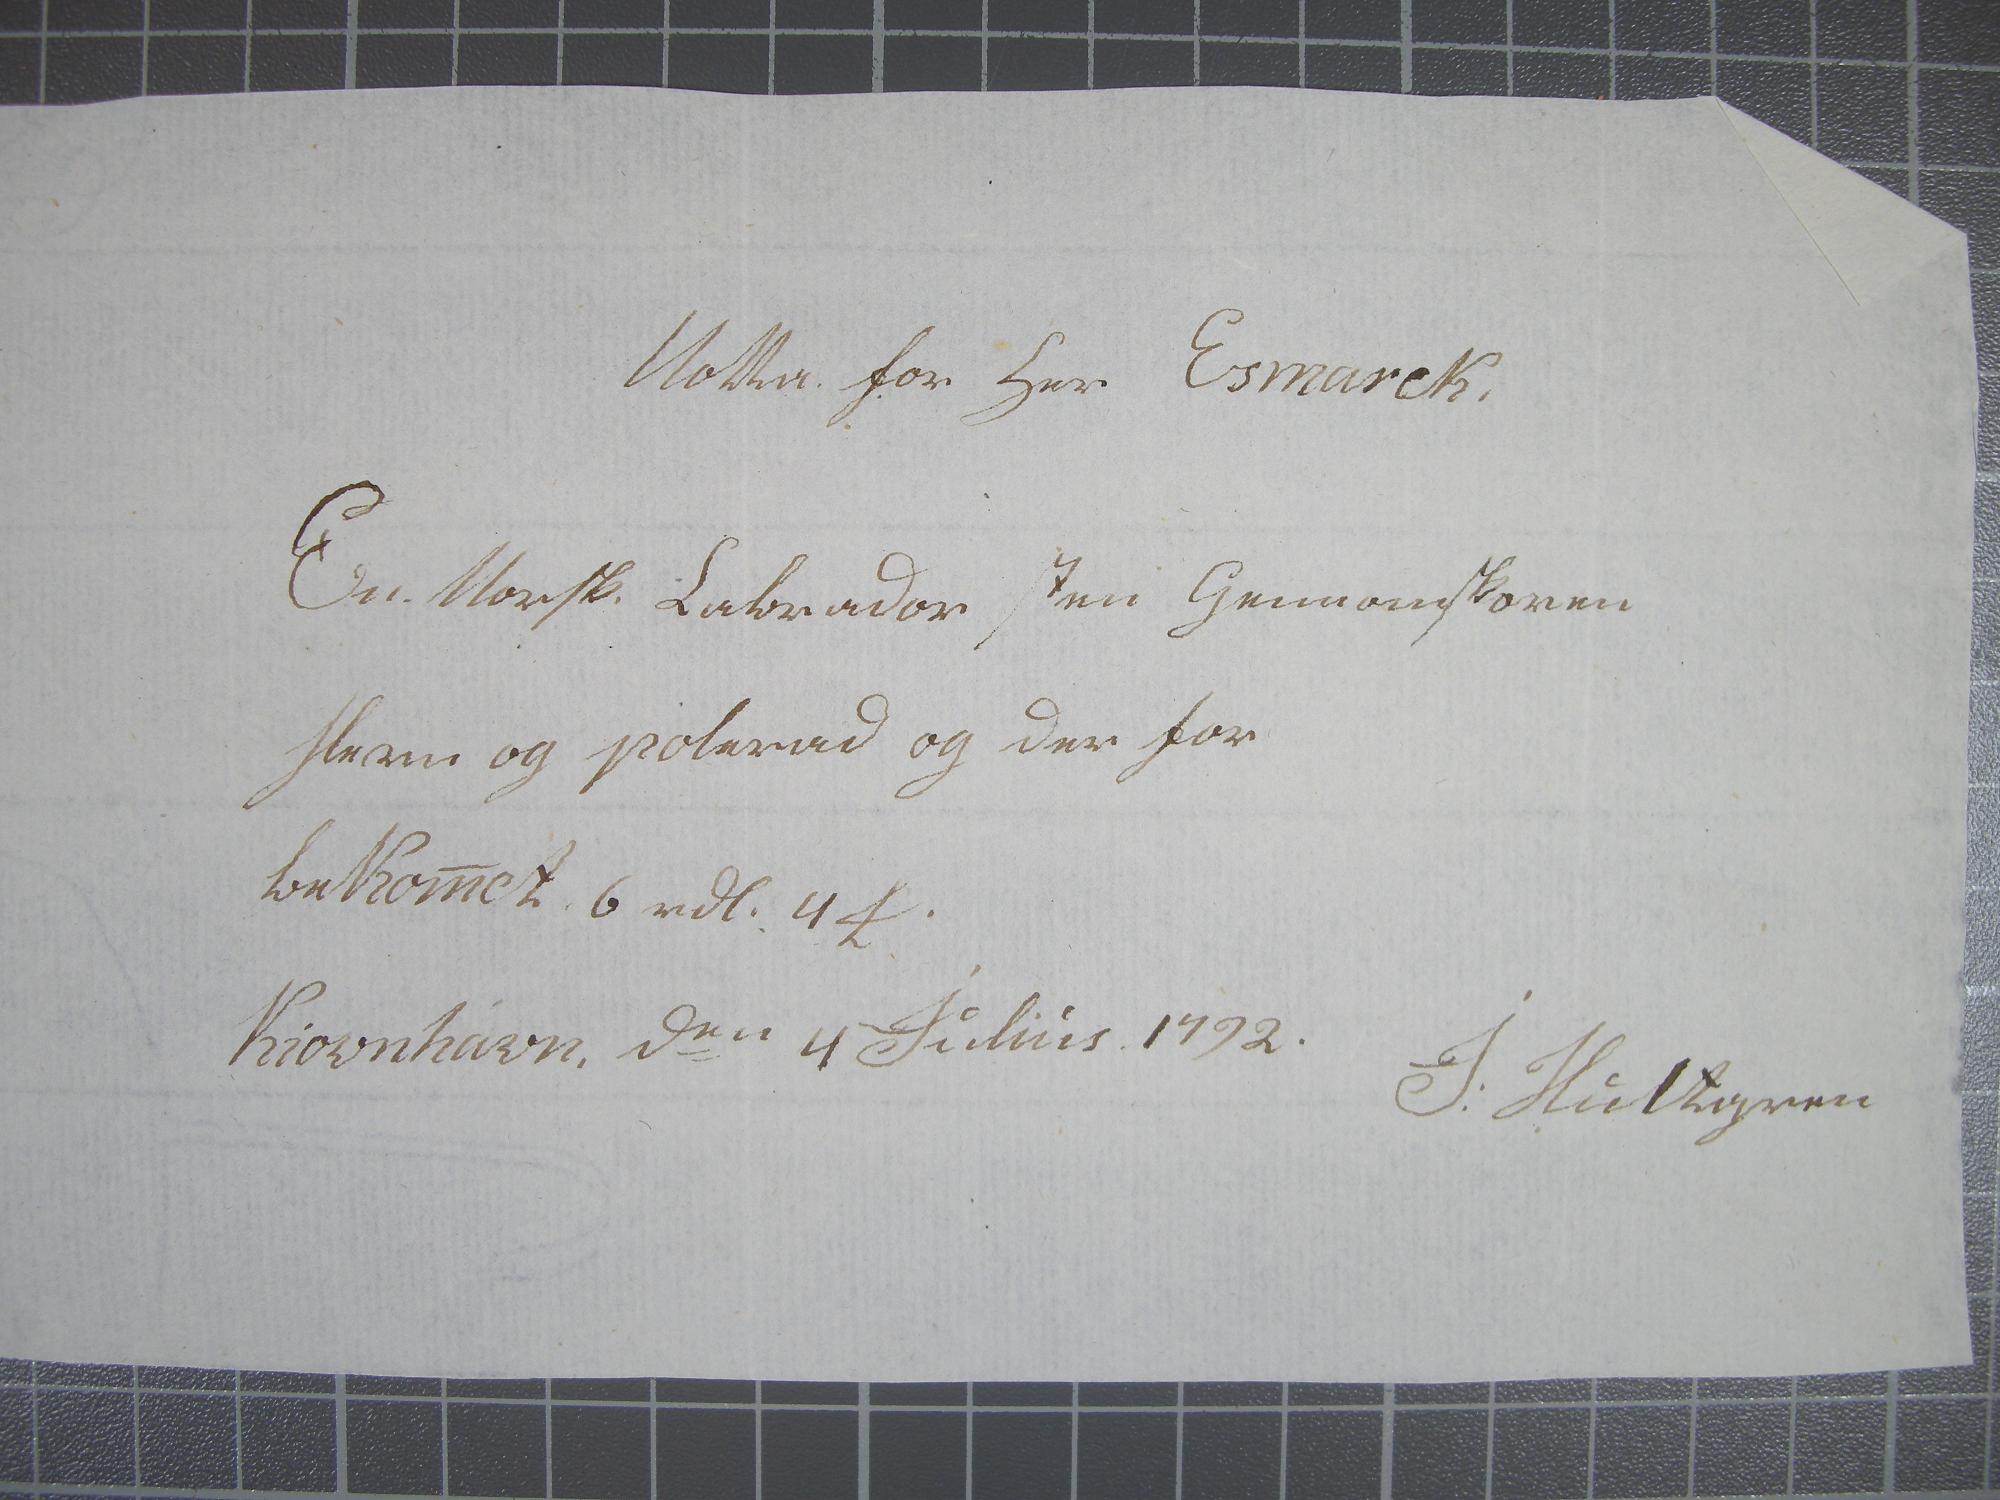 Notta for Her Esmarck.
En Norsk. Labrador sten Gennomskoren
sleven og polerad og der for
bekom̄et 6 rdl. 4 ß.
Kiovnhavn. den 4 Julius 1792.
J: Hultgren